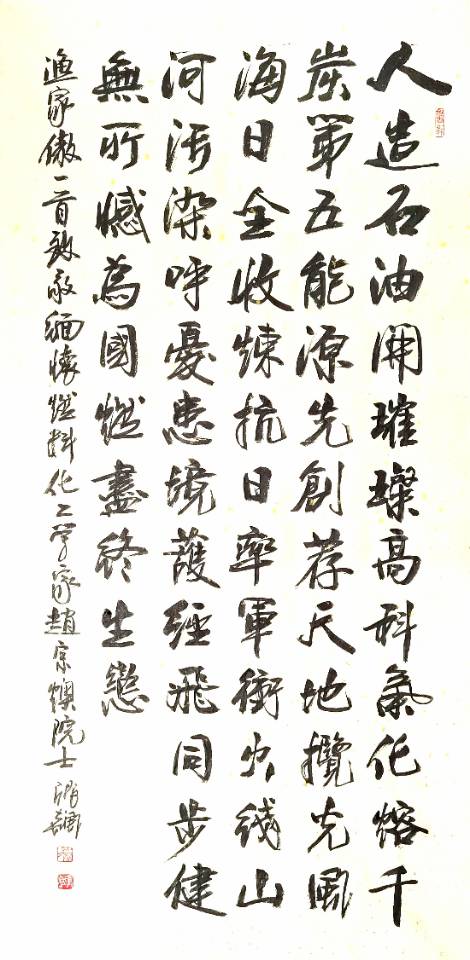 人造石油開璀璨高科氣化熔千
炭第五能源先創荐天地攬光風
海日全收煉抗日率軍衝火线山
河污染呼憂患境護經飛同步健
無所憾為國燃盡終生戀
渔家傲一首致敬緬懷燃料化工学家趙宗燠院士